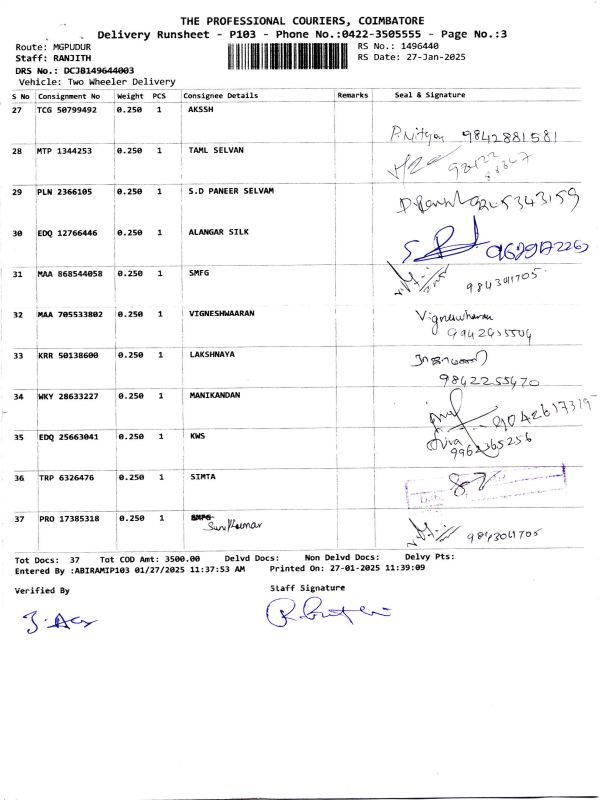 THE PROFESSIONAL COURIERS, COIMBATORE
Delivery Runsheet - P103 - Phone No.:0422-3505555 - Page No.:3
Route: MGPUDUR RS No.: 1496440
Staff: RANJITH RS Date: 27-Jan-2025
DRS No.: DCJB149644003
Vehicle: Two Wheeler Delivery
S No Consignment No Weight PCS Consignee Details Remarks Seal & Signature
27 TCG 50799492 0.250 1 AKSSH
P.Nitya 9842881581
28 MTP 1344253 0.250 1 TAML SELVAN
29 PLN 2366105 0.250 1 S.D PANEER SELVAM
30 EDQ 12766446 0.250 1 ALANGAR SILK
31 MAA 868544058 0.250 1 SMFG
32 MAA 705533802 0.250 1 VIGNESHWAARAN
Vigneswharan
33 KRR 50138600 0.250 1 LAKSHNAYA
9842255470
34 WKY 28633227 0.250 1 MANIKANDAN
9042617319
35 EDQ 25663041 0.250 1 KWS
9962365256
36 TRP 6326476 0.250 1 SIMTA
37 PRO 17385318 0.250 1 SMFG
Sunilkumar
Tot Docs: 37 Tot COD Amt: 3500.00 Delvd Docs: Non Delvd Docs: Delvy Pts:
Entered By :ABIRAMIP103 01/27/2025 11:37:53 AM Printed On: 27-01-2025 11:39:09
Verified By Staff Signature